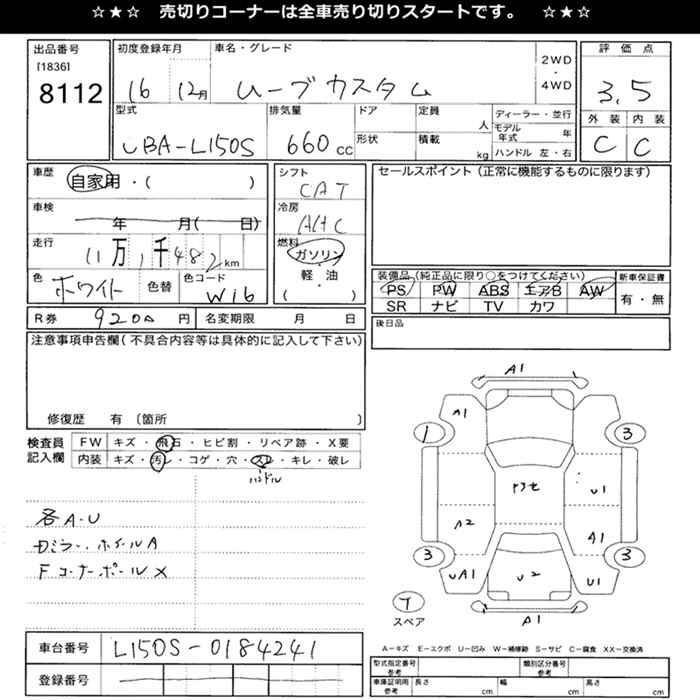 ☆★☆ 売切りコーナーは全車売り切りスタートです。 ☆★☆
出品番号 初度登録年月 車名・グレード 2WD ・ 4WD 評価点
[1836]
8112 16 12月 ムーブカスタム 3.5
型式 排気量 ドア 定員 人 ディーラー・並行 外装 内装
UBA-L150S 660cc 形状 積載 kg モデル年式 年 C C
ハンドル 左・右
車歴 自家用・( ) シフト CAT セールスポイント(正常に機能するものに限ります)
車検 年 月( 日) 冷房 AAC
走行 11万1千482km 燃料 ガソリン
軽・油
( )
色 ホワイト 色替 色コード W16
装備品(純正品に限り○をつけてください) 新車保証書
PS PW ABS エアB AW 有・無
SR ナビ TV カワ
R券 920 円 名変期限 月 日 後日品
注意事項申告欄(不具合内容等は具体的に記入して下さい)
修復歴 有〔箇所
検査員記入欄 FW キズ・飛石・ヒビ割・リペア跡・X要
内装 キズ・汚レ・コゲ・穴・スレ・キレ・破レ
ハンドル
各A・U
Dミラー、ホイールA
Fコーナーポール×
A1
A1
1 3
アタセ U1
A2 A1
3 3
UA1 U2 U1
T
スペア A1
A−キズ E−エクボ U−凹み W−補修跡 S−サビ C−腐食 XX−交換済
車台番号 L150S-0184241
登録番号
型式指定番号 参考 類別区分番号 参考
車庫証明用 参考 長さ cm 幅 cm 高さ cm